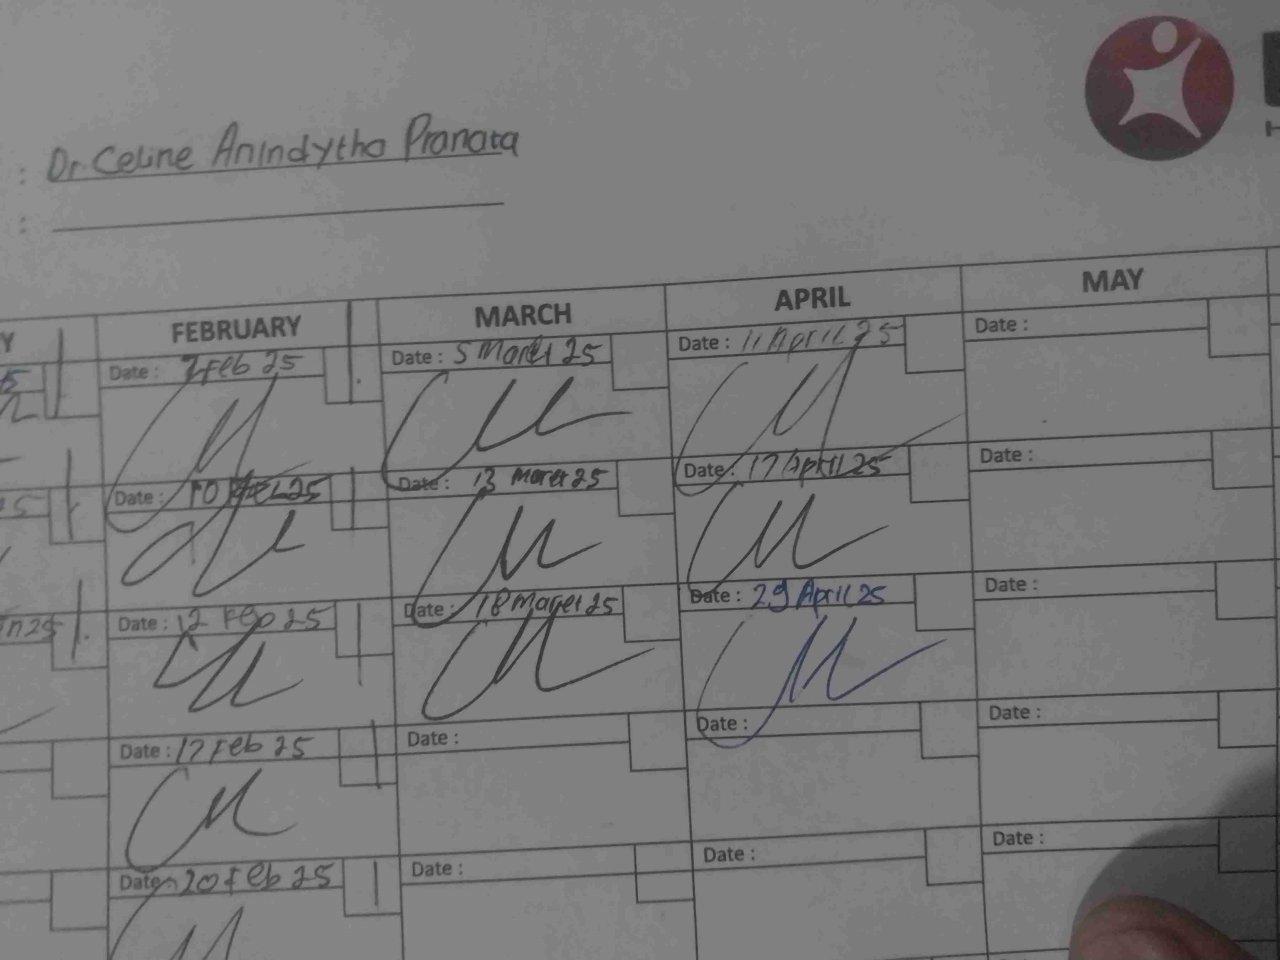 : Dr. Celine Anindytha Pranata
:
Y FEBRUARY MARCH APRIL MAY
Date : 7 Feb 25 Date : 5 Maret 25 Date : 11 April 25 Date :
Date : 10 Feb 25 Date : 13 Maret 25 Date : 17 April 25 Date :
Date : 12 Feb 25 Date : 18 Maret 25 Date : 29 April 25 Date :
Date : 17 Feb 25 Date : Date : Date :
Date : 20 Feb 25 Date : Date : Date :